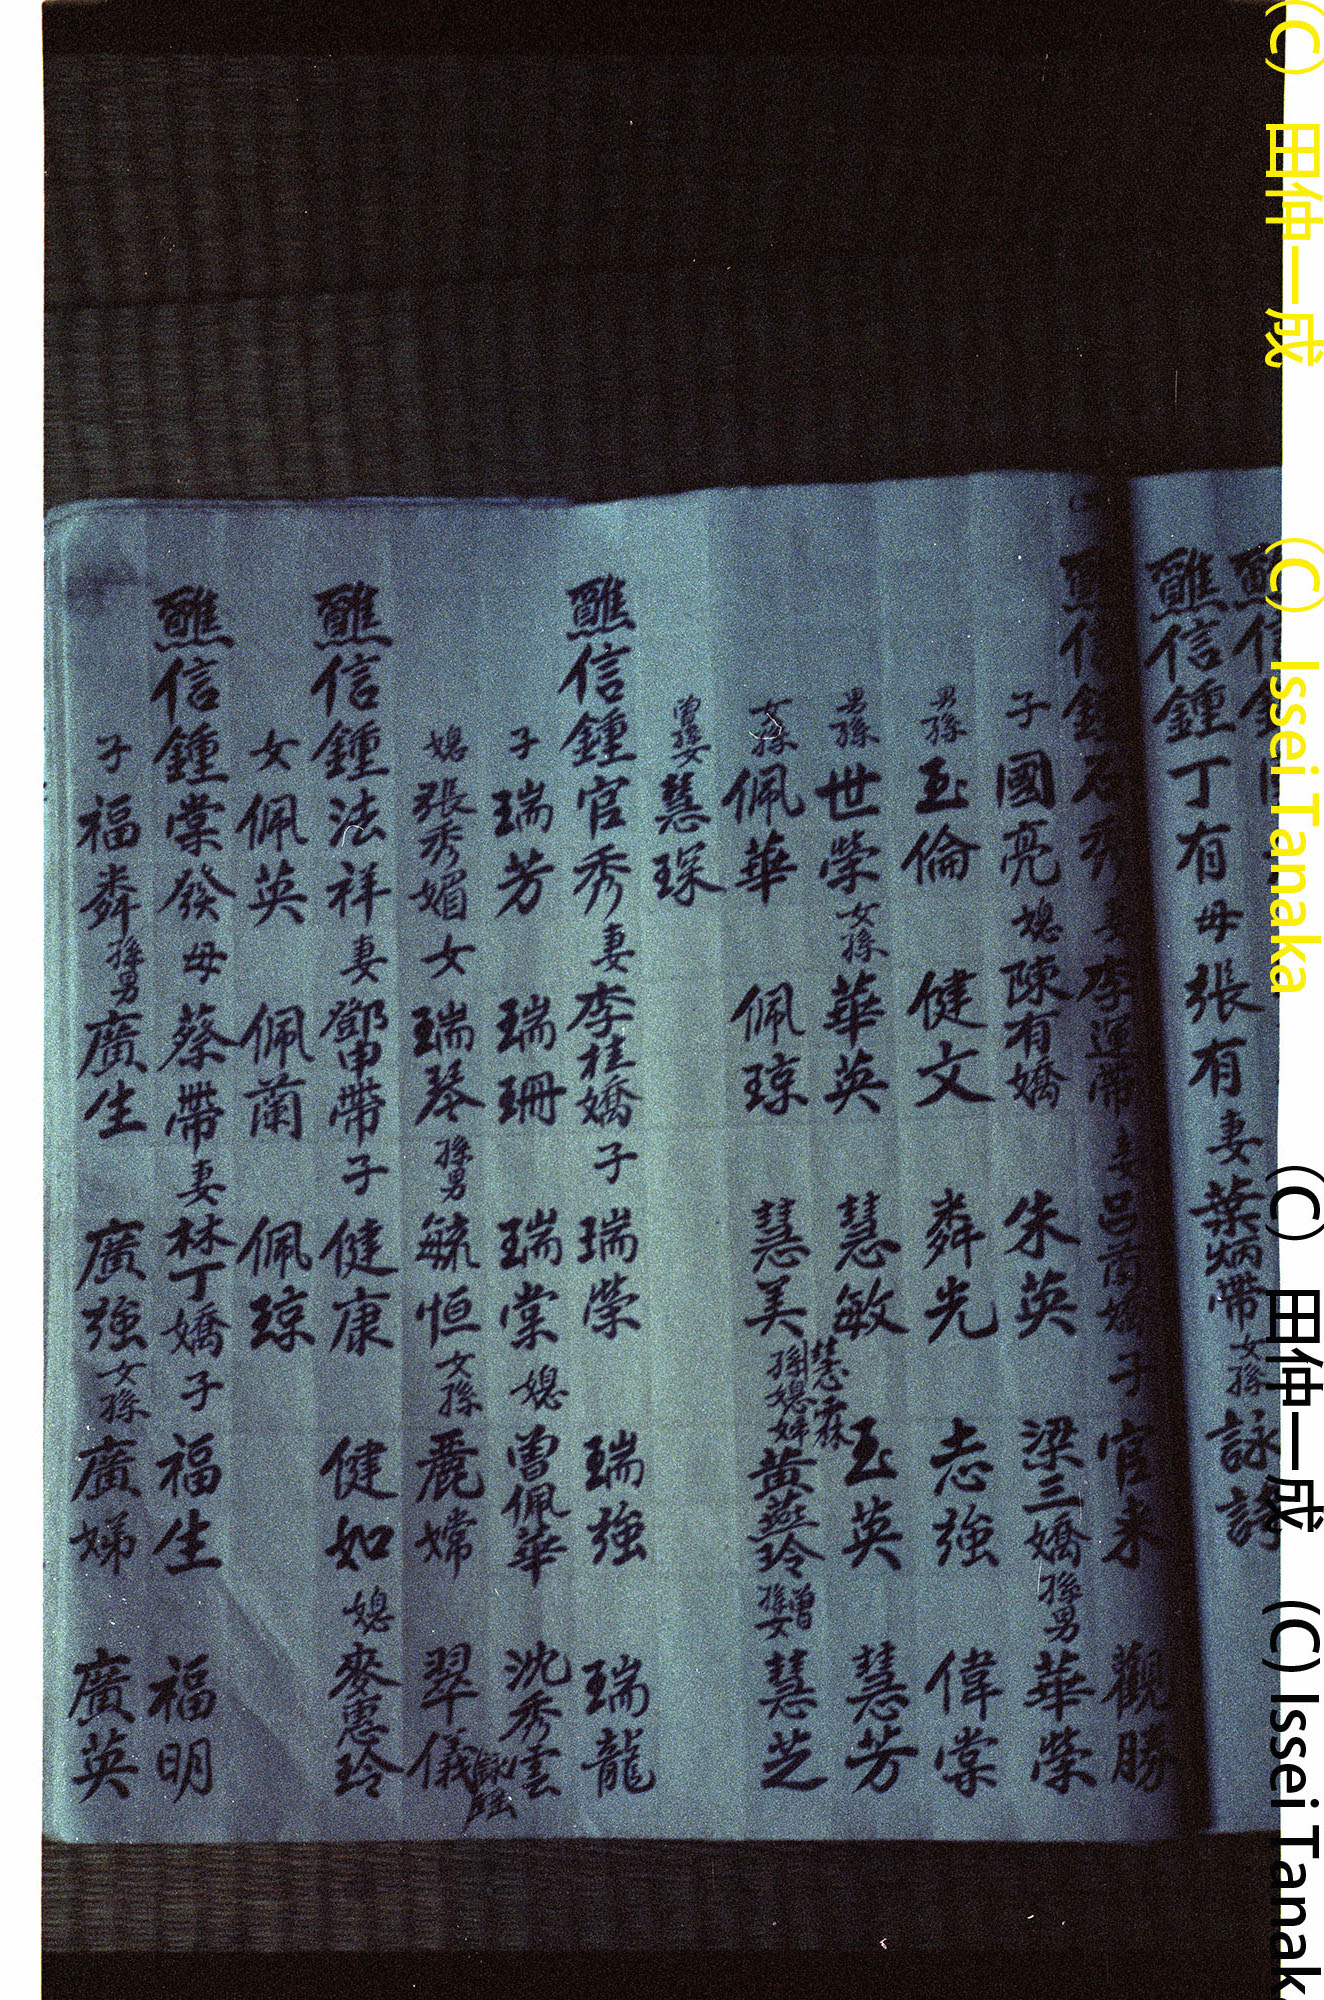 信鍾丁有 母張有 妻葉炳帶 女孫 詠詩
信鍾 秀 妻李運帶 妾呂蘭嬌 子 官來 觀勝
子 國亮 媳 陳有嬌 朱英 梁三嬌 孫男 華榮
男孫 玉倫 健文 彝光 志強 偉棠
男孫 世榮 女孫 華英 慧敏 玉英 慧芳
慧霖
女孫 佩華 佩琼 慧美 孫媳婦 黃燕玲 曾孫女 慧芝
曾孫女 慧琛
醮信鍾官秀 妻 李桂嬌 子 瑞榮 瑞強 瑞龍
子 瑞芳 瑞珊 瑞棠 媳 曾佩華 沈秀雲
媳 張秀媚 女 瑞琴 孫男 毓恒 女孫 麗嫦 翠儀
醮信鍾法祥 妻 鄧申帶 子 健康 健如 媳 麥惠玲
女 佩英 佩蘭 佩琼
醮信鍾棠發 母 蔡帶 妻 林丁嬌 子 福生 福明
子 福彝 孫男 廣生 廣強 女孫 廣娣 廣英
(C) 田仲一成 (C) Issei Tanaka
(C) 田仲一成 (C) Issei Tanak